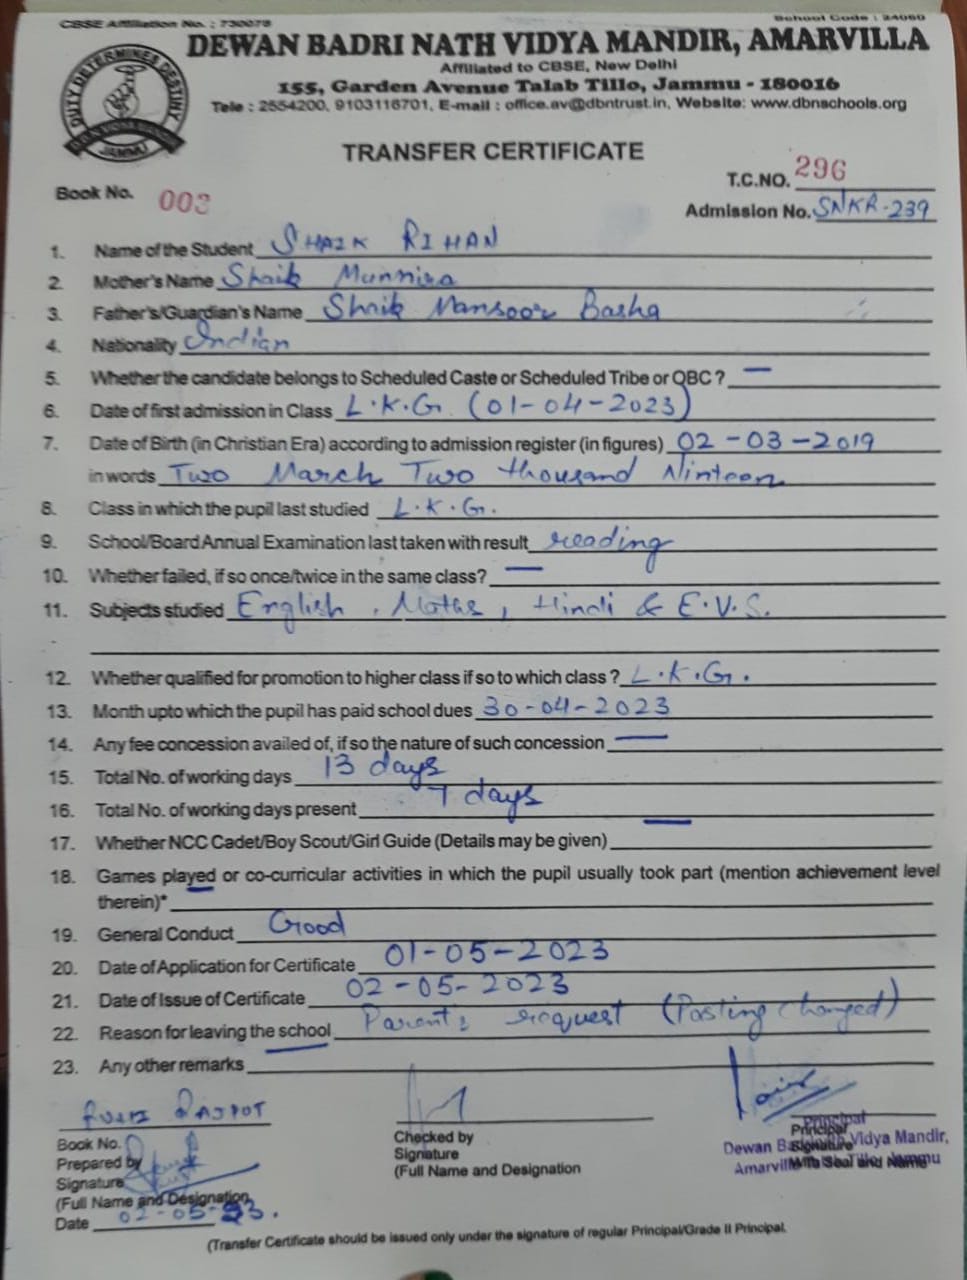 CBSE Affiliation No. : 730078
School Code : 24060
DUTY DETERMINES DESTINY
JAMMU
DEWAN BADRI NATH VIDYA MANDIR, AMARVILLA
Affiliated to CBSE, New Delhi
155, Garden Avenue Talab Tillo, Jammu - 180016
Tele : 2554200, 9103116701, E-mail : office.av@dbntrust.in, Website: www.dbnschools.org
TRANSFER CERTIFICATE
T.C.NO. 296
Book No. 003
Admission No. SNKR-239
1. Name of the Student SHAIK RIHAN
2. Mother's Name Shaik Munnira
3. Father's/Guardian's Name Shaik Mansoor Basha
4. Nationality Indian
5. Whether the candidate belongs to Scheduled Caste or Scheduled Tribe or OBC ? —
6. Date of first admission in Class L.K.G. (01-04-2023)
7. Date of Birth (in Christian Era) according to admission register (in figures) 02-03-2019
in words Two March Two thousand Ninteen
8. Class in which the pupil last studied L.K.G.
9. School/Board Annual Examination last taken with result reading
10. Whether failed, if so once/twice in the same class? —
11. Subjects studied English, Maths, Hindi & E.V.S.
12. Whether qualified for promotion to higher class if so to which class ? L.K.G.
13. Month upto which the pupil has paid school dues 30-04-2023
14. Any fee concession availed of, if so the nature of such concession —
15. Total No. of working days 13 days
16. Total No. of working days present 7 days
17. Whether NCC Cadet/Boy Scout/Girl Guide (Details may be given) —
18. Games played or co-curricular activities in which the pupil usually took part (mention achievement level
therein)* —
19. General Conduct Good
20. Date of Application for Certificate 01-05-2023
21. Date of Issue of Certificate 02-05-2023
22. Reason for leaving the school Parents request (Posting changed)
23. Any other remarks —
RAJPOT
Book No.
Prepared by
Signature
(Full Name and Designation
Date 02-05-23.
Checked by
Signature
(Full Name and Designation
Principal
Principal
Signature
With Seal and Name
Dewan B Vidya Mandir,
Amarvilla Tillo, Jammu
(Transfer Certificate should be issued only under the signature of regular Principal/Grade II Principal.